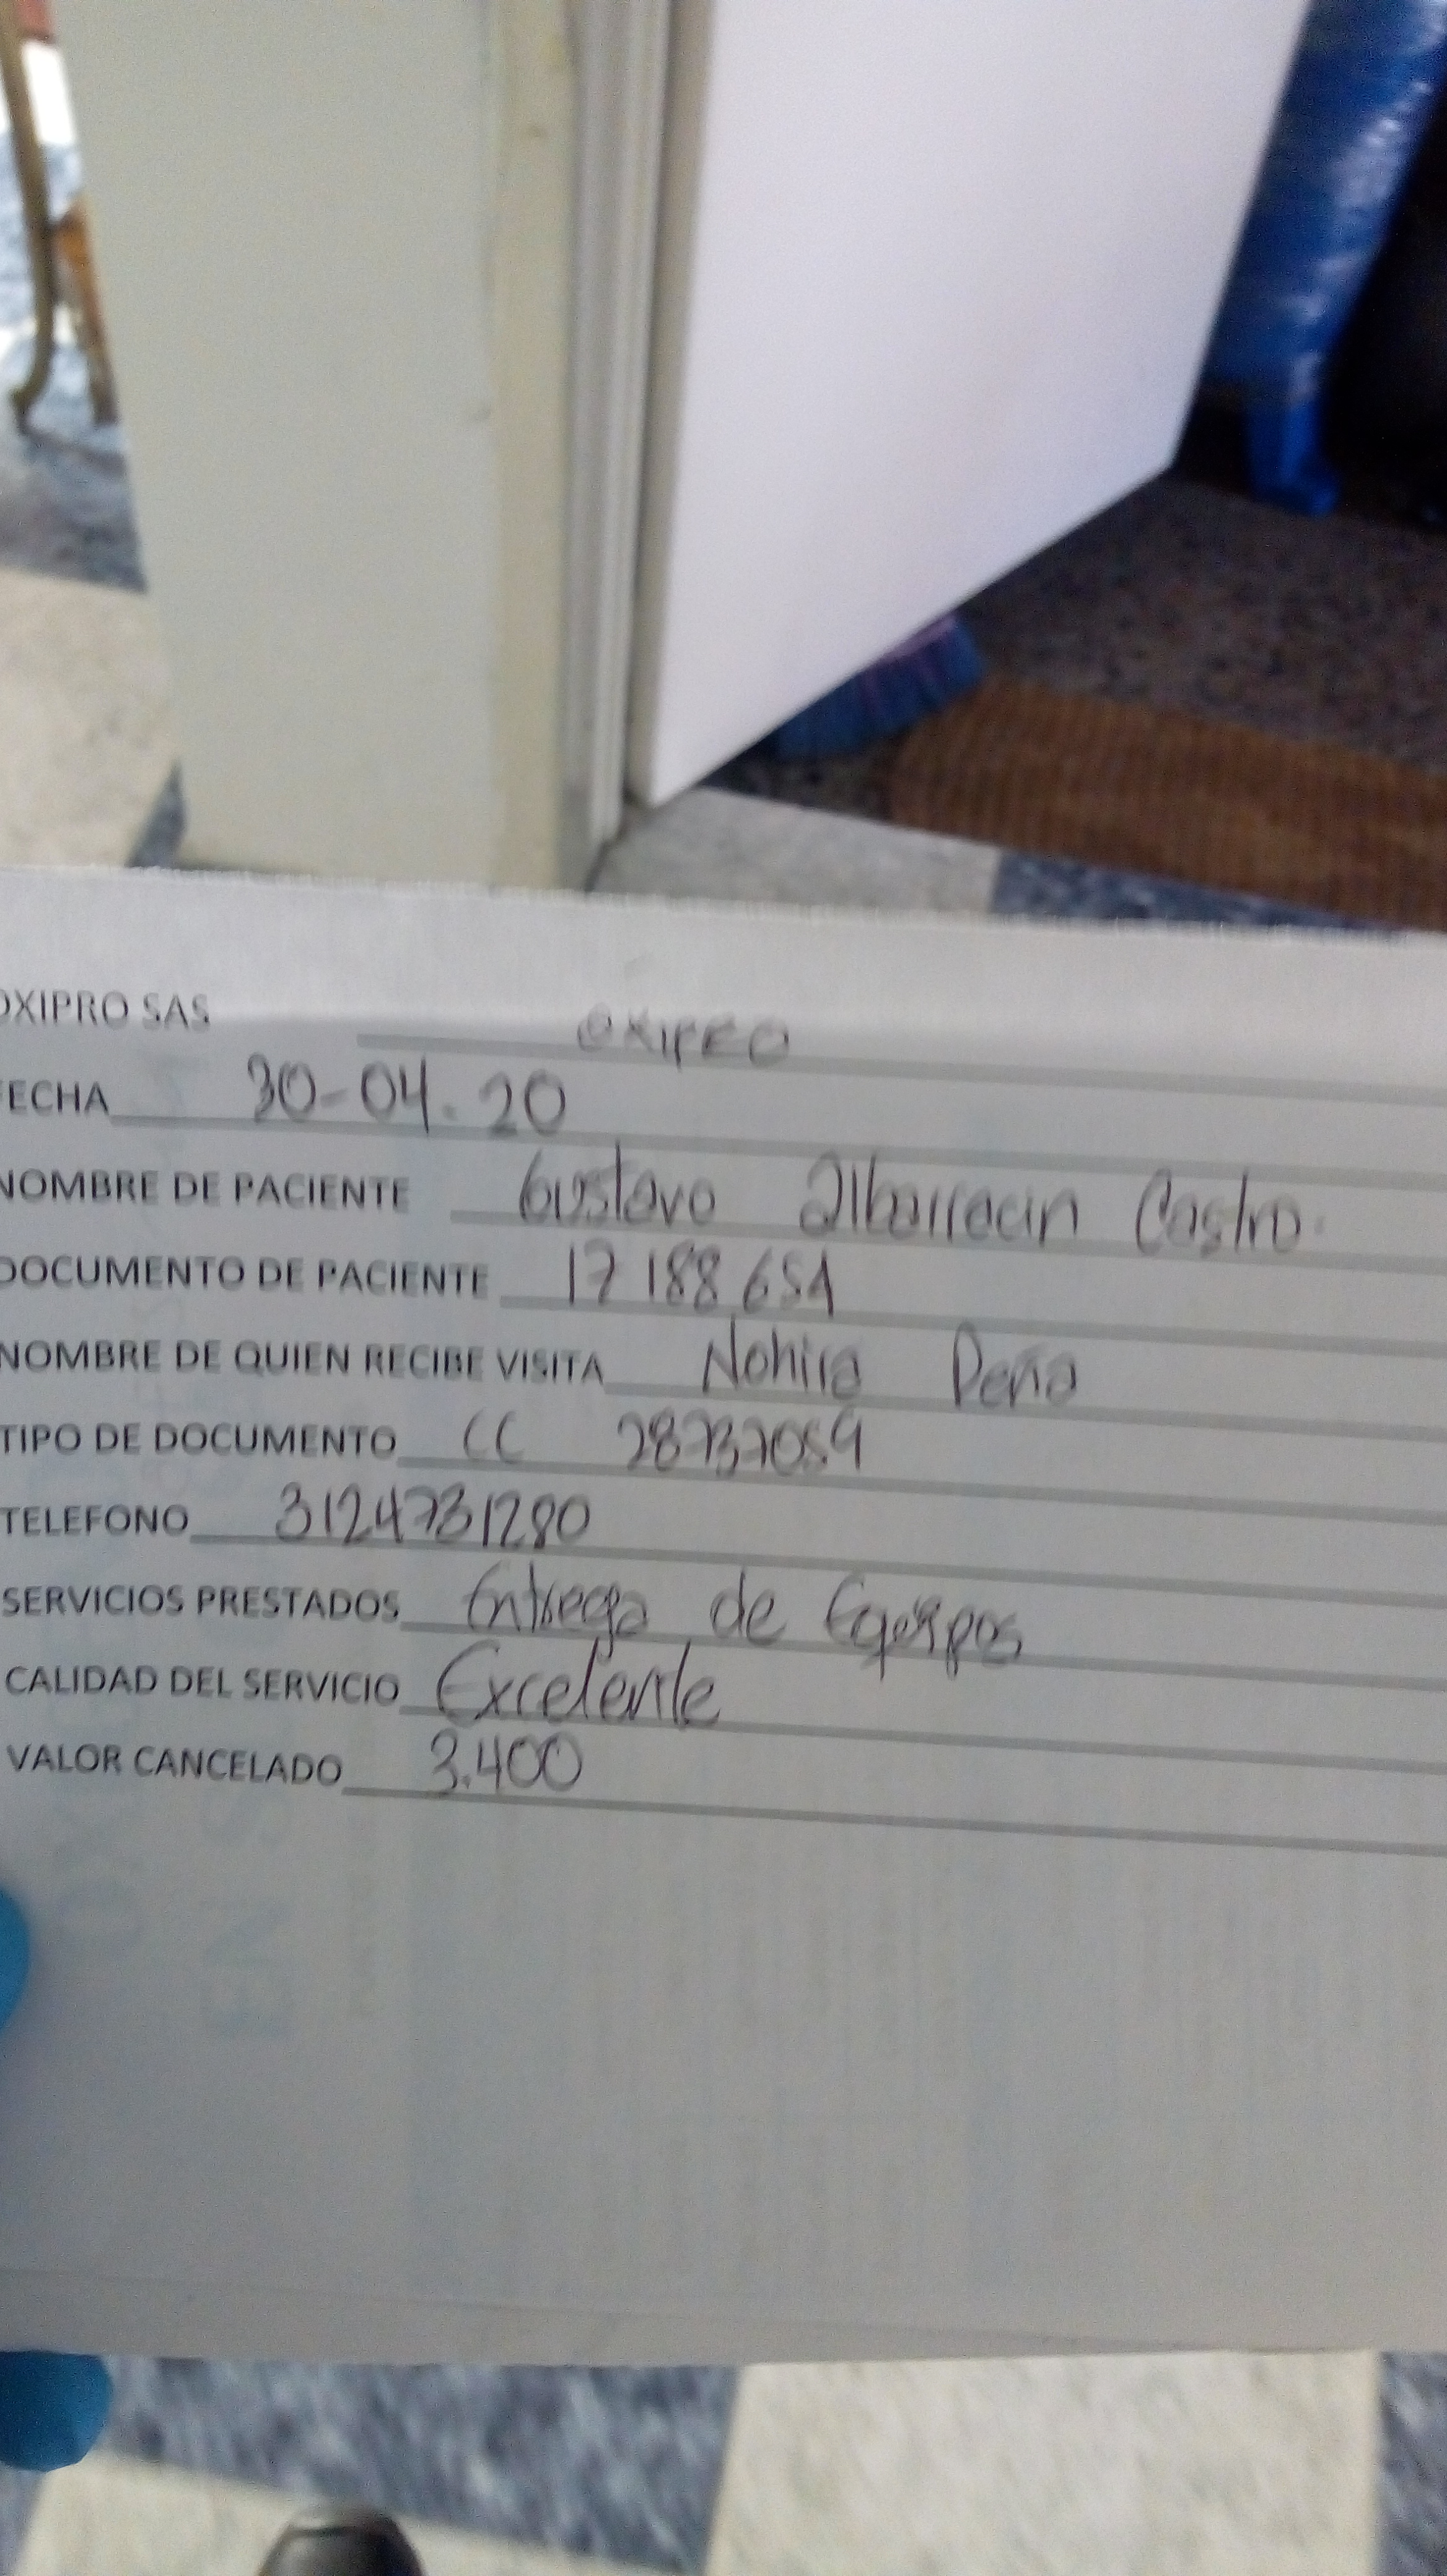 OXIPRO SAS OXIPRO
FECHA 30-04-20
NOMBRE DE PACIENTE Gustavo Albarracin Castro.
DOCUMENTO DE PACIENTE 17188654
NOMBRE DE QUIEN RECIBE VISITA Nohira Peña
TIPO DE DOCUMENTO CC 28737059
TELEFONO 3124731280
SERVICIOS PRESTADOS Entrega de Equipos
CALIDAD DEL SERVICIO Excelente
VALOR CANCELADO 3.400